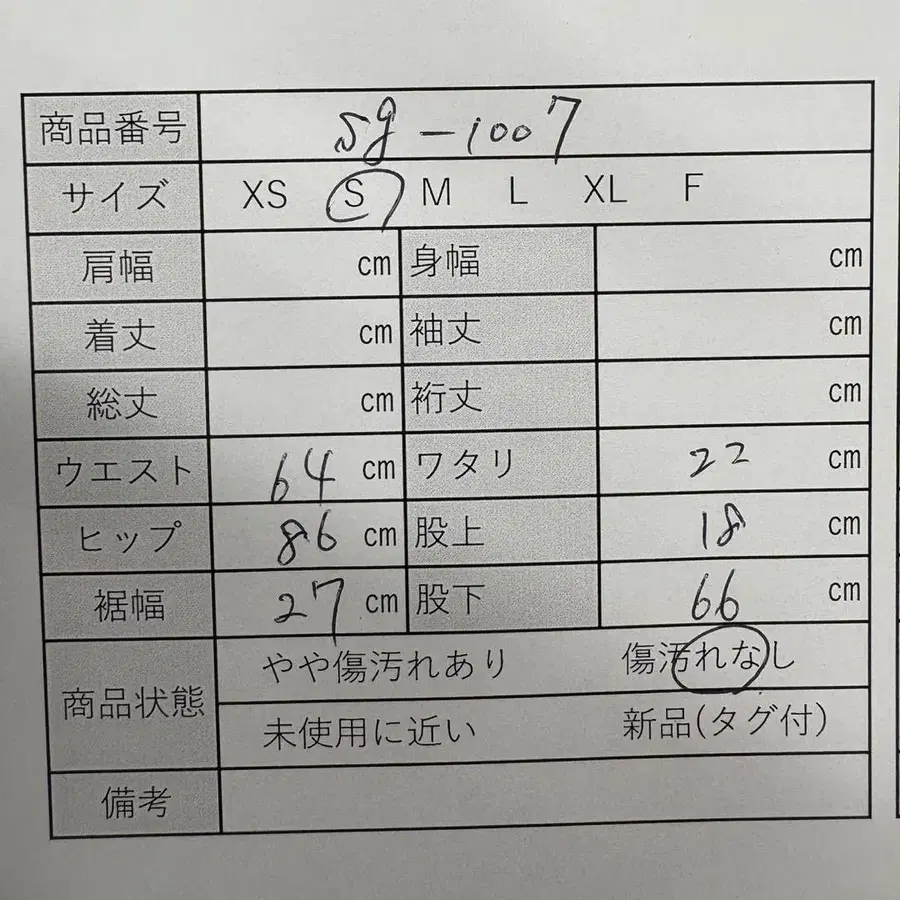 商品番号 sg-1007
サイズ XS S M L XL F
肩幅 cm 身幅 cm
着丈 cm 袖丈 cm
総丈 cm 裄丈 cm
ウエスト 64 cm ワタリ 22 cm
ヒップ 86 cm 股上 18 cm
裾幅 27 cm 股下 66 cm
商品状態 やや傷汚れあり 傷汚れなし
未使用に近い 新品(タグ付)
備考